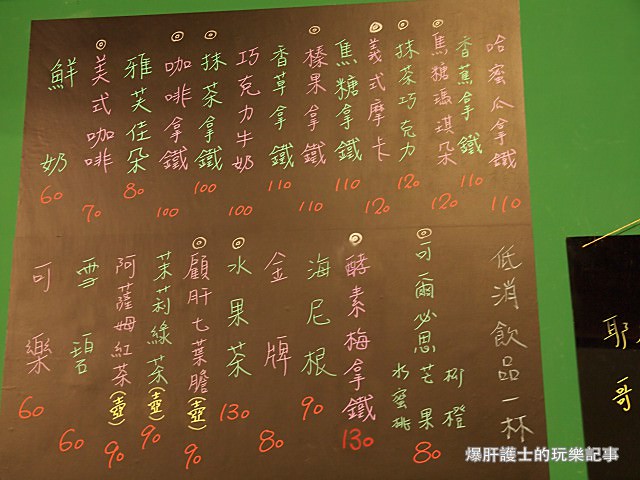 哈蜜瓜拿鐵 110
香蕉拿鐵 110
◎焦糖瑪琪朵 120
◎抹茶巧克力 120
◎義式摩卡 120
焦糖拿鐵 110
◎榛果拿鐵 110
香草拿鐵 110
巧克力牛奶 100
◎抹茶拿鐵 100
◎咖啡拿鐵 100
雅芙佳朵 80
◎美式咖啡 70
鮮奶 60
低消飲品一杯
◎可爾必思 柳橙 芒果 水蜜桃 80
◎酵素梅拿鐵 130
海尼根 90
金牌 80
◎水果茶 130
◎顧肝七葉膽(壺) 90
茉莉綠茶(壺) 90
阿薩姆紅茶(壺) 90
雪碧 60
可樂 60
耶
哥
爆肝護士的玩樂記事